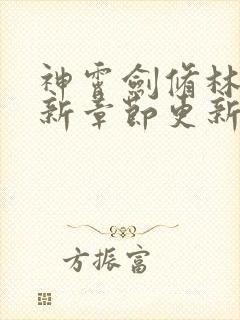 神霄劍脩林
新章節更新
方振富